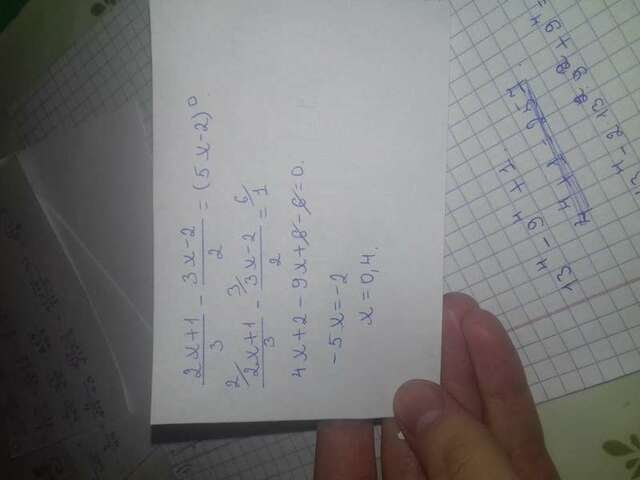 (2x+1)/3 - (3x-2)/2 = (5x-2)^0.
2/ (2x+1)/3 - 3/ (3x-2)/2 = 6/ 1
4x+2-9x+6-6=0.
-5x=-2
x=0,4.
13^4 - 9^4 + 1.
4^4 + 1 = 257.
13^4 - 2·13^2·9^2 + 9^4 =